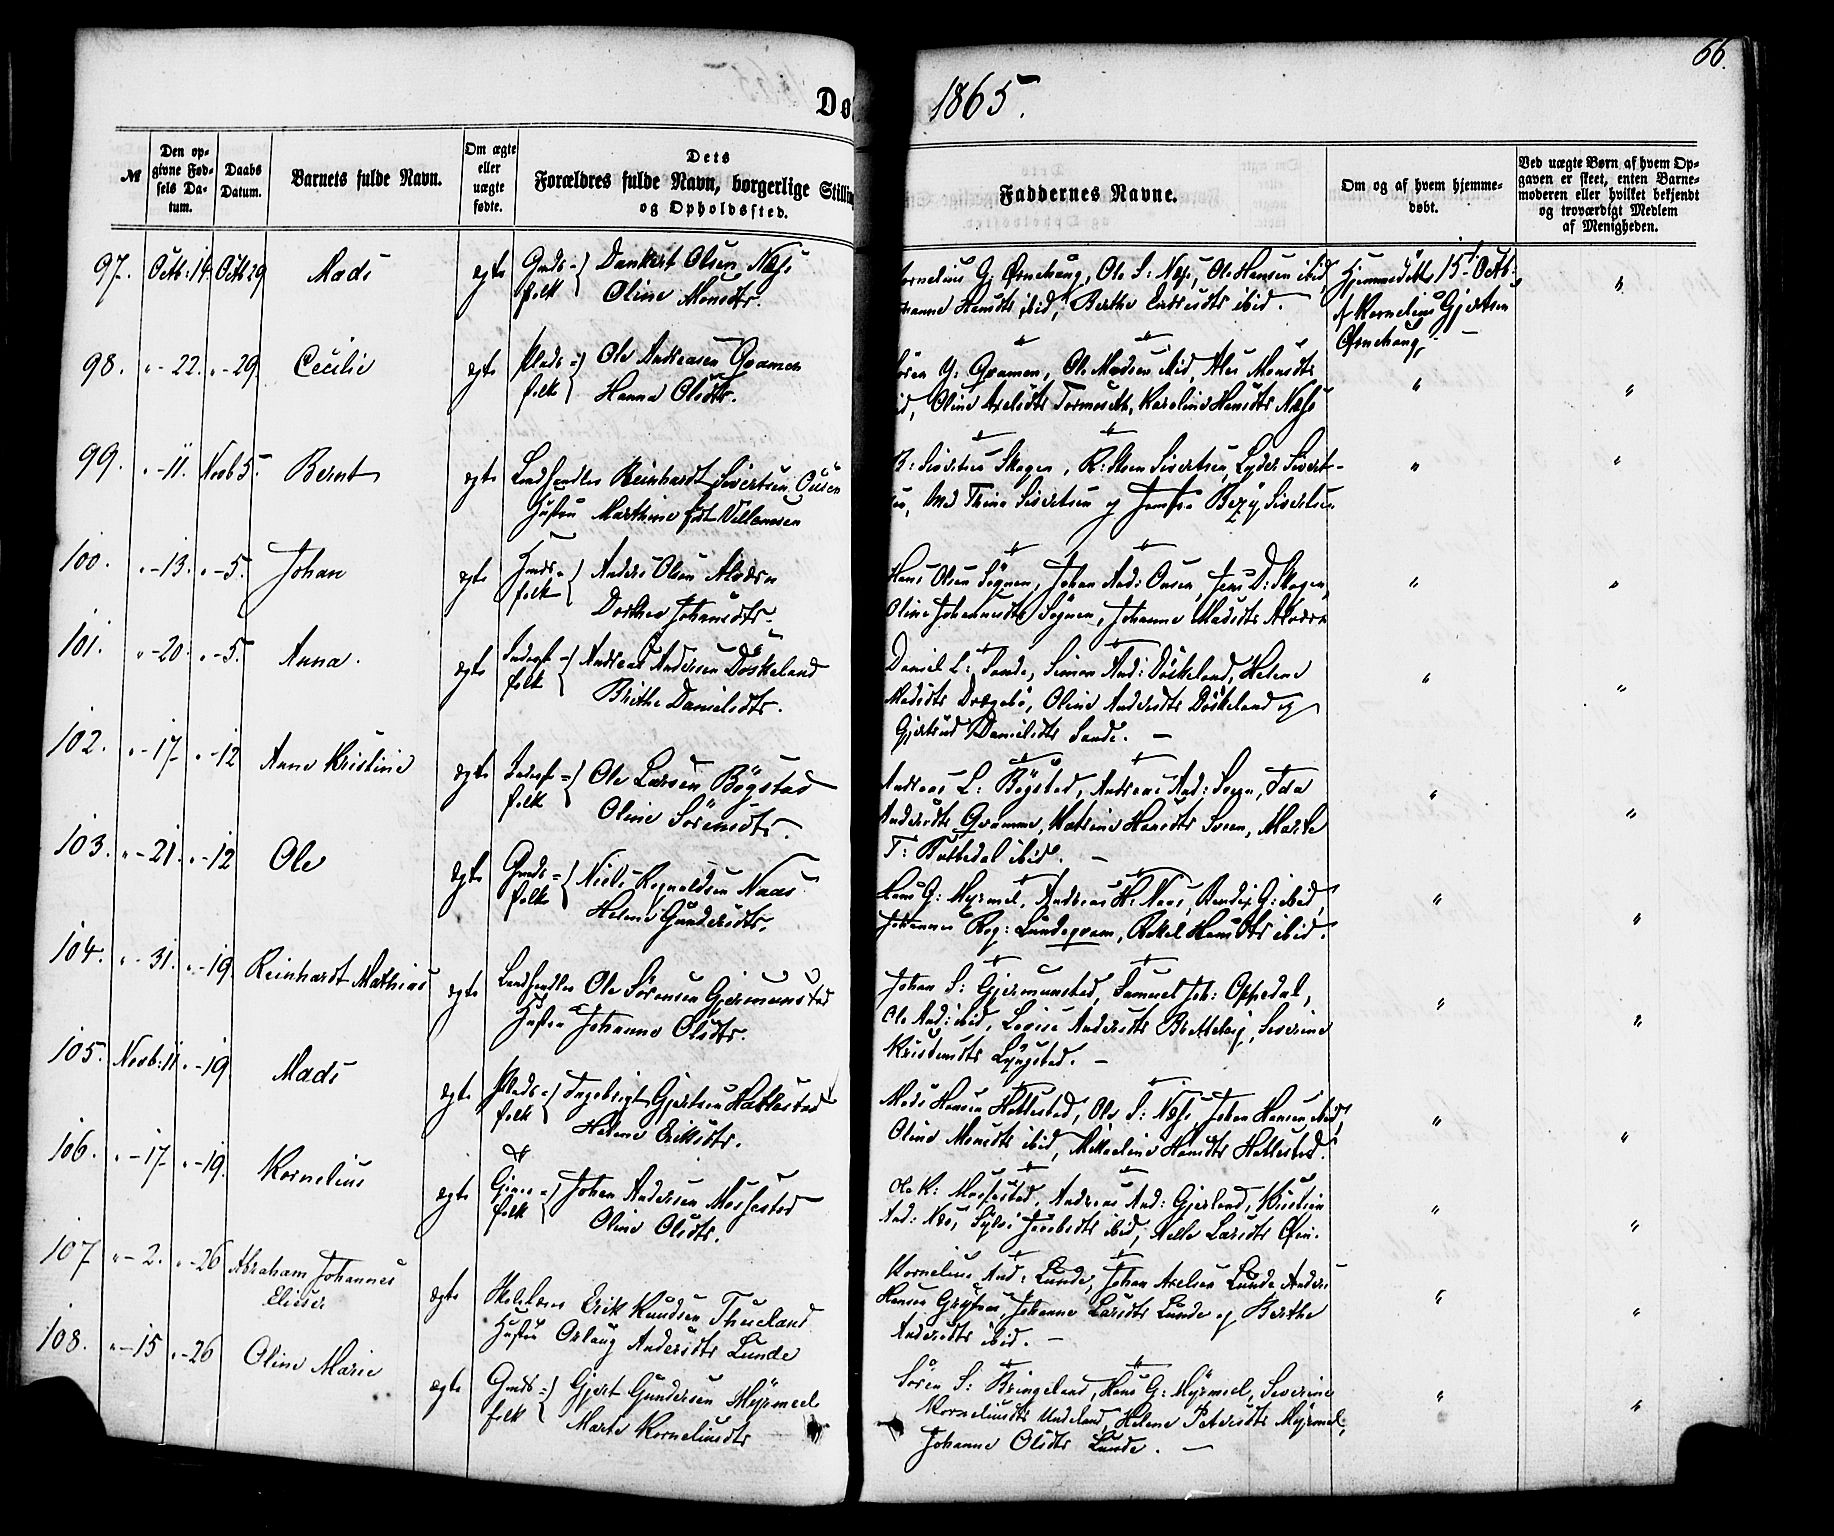 66.
Dø 1865.
№
Den op-
givne Fød-
sels Da-
tum.
Daabs
Datum.
Barnets fulde Navn.
Om ægte
eller
uægte
fødte.
Dets
Forældres fulde Navn, borgerlige Stilling
og Opholdssted.
Faddernes Navne.
Om og af hvem hjemme-
døbt.
Ved uægte Børn af hvem Op-
gaven er skeet, enten Barne-
moderen eller hvilket bekjendt
og troværdigt Medlem
af Menigheden.
97. Octb: 14. Octb 29 Mads ægte Gmds- folk Dankert Olsen Næss
Oline Monsdtr.
Kornelius G: Ørnehaug, Ole S: Næss, Ole Hansen ibid,
Hansdtr ibid, Berthe ibid.
Hjemmedøbt 15 Octb.
af Kornelius Gjertsen
Ørnehaug. "
98. "-22. "-29 Cecilie ægte Plads- folk Ole Andreasen Qvamen
Hanna Olsdtr.
Søren G: Qvamen, Ole Madsen ibid, Monsdtr
Oline Axelsdtr Karoline Hansdtr Næss
" "
99. "-11. Novb 5. Bernt ægte Landhandler Reinhardt Sivertsen Ousen
Hustru Marthine født Villumsen
Sivertsen Skagen, Sivertsen, Lyder Sivert-
Trine Sivertsen og Jomfru Sivertsen
" "
100. "-13. "-5. Johan ægte Gmds- folk Anders Olsen
Dorthea Johansdtr.
Hans Olsen Søgnen, Johan And: Ousen, Jens D: Skagen,
Oline Johannesdtr Søgnen, Johanne Madsdtr
" "
101. "-20. "-5. Anna. ægte Inderst- folk Andreas Andersen Døskeland
Brithe Danielsdtr.
Daniel L: Sande, Simon And: Døskeland, Helene
Madsdtr Drægebø, Oline Andersdtr Døskeland og
Gjertrud Danielsdtr Sande. -
" "
102. "-17. "-12 Anne Kristine ægte Inderst- folk Ole Larsen Bøgstad
Oline Sörensdtr.
Andreas L: Bøgstad, Andreas And: Ida
Andersdtr Qvamme, Hansdtr Marte
T: ibid. -
" "
103. "-21. "-12 Ole ægte Gmds- folk Niels Rognaldsen Naas
Helene Gundersdtr.
Hans G: Myrmel, Andreas H: Naas, Bendix G: ibid,
Johannes Rog: Lundeqvam, Rakel Hansdtr ibid.
" "
104. "-31. "-19. Reinhardt Mathias ægte Landhandler Ole Sørensen Gjermunstad
Hustru Johanne Olsdtr.
Johan S: Gjermunstad, Samuel Joh: Oppedal,
Ole And: ibid, Lovise Andersdtr Severine
Kristensdtr Lyngstad. -
" "
105. Novb: 11 "-19. Mads ægte Plads- folk Ingebrigt Gjertsen Hatlestad
Helene Eriksdtr.
Mads Hansen Hatlestad, Ole S: Næss, Johan Hansen ibid,
Oline Monsdtr ibid, Hansdtr Hatlestad.
" "
106. "-17. "-19. Kornelius ægte folk Johan Andersen Massestad
Oline Olsdtr.
Ole K: Massestad, Andreas And: Gjerland, Kristian
And: Jacobsdtr ibid, Larsdtr
" "
107 "-2. "-26 Abraham Johannes
Elieser ægte Erik Knudsen Thueland
Hustru Andersdtr Lunde
Kornelius And: Lunde, Johan Axelsen Lunde Anders
Hansen Johanne Larsdtr Lunde og Berthe
Andersdtr ibid. -
" "
108. "-15 "-26 Oline Marie ægte Gmds- folk Gjert Gundersen Myrmeel
Marte Korneliusdtr
Søren S: Bringeland, Hans G: Myrmeel, Severine
Korneliusdtr Undeland, Helene Petersdtr Myrmel,
Johanne Olsdtr Lunde. -
" "